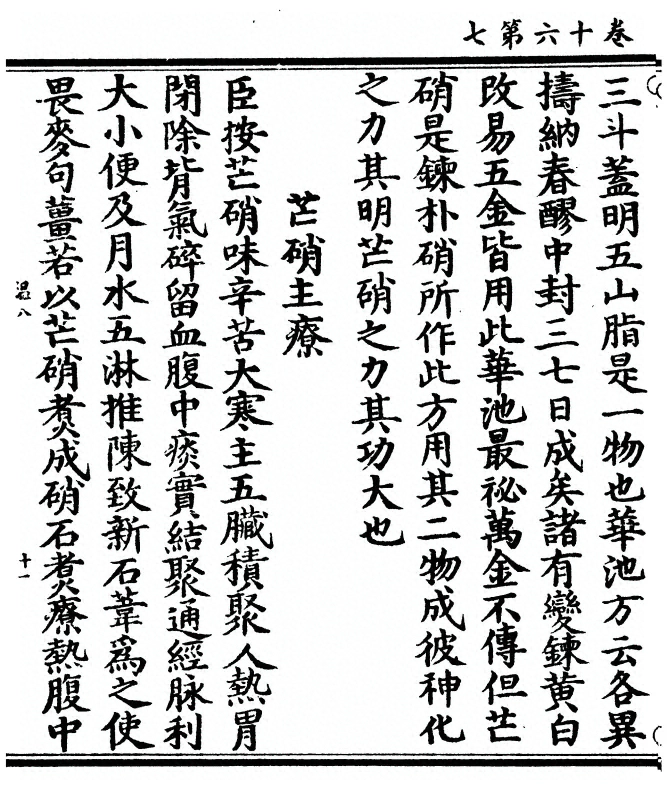 卷十六第七
三斗蓋明五山脂是一物也華池方云各異
擣納春醪中封三七日成矣諸有變鍊黃白
改易五金皆用此華池最祕萬金不傳但芒
硝是鍊朴硝所作此方用其二物成彼神化
之力其明芒硝之力其功大也
芒硝主療
臣按芒硝味辛苦大寒主五臟積聚久熱胃
閉除背氣碎留血腹中痰實結聚通經脉利
大小便及月水五淋推陳致新石葦爲之使
畏麥句薑若以芒硝煑成硝石煑療熱腹中
温八
十一